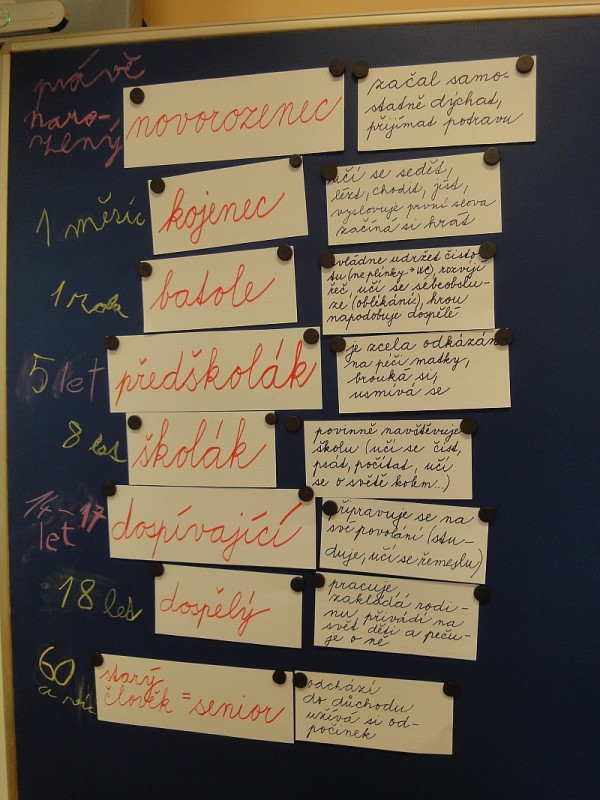 právě
naro-
zený
novorozenec
začal samo-
statně dýchat,
přijímat potravu
1 měsíc
kojenec
učí se sedět,
lézt, chodit, jíst,
vyslovuje první slova
začíná si hrát
1 rok
batole
zvládne udržet čisto-
tu (ne plínky → WC), rozvíjí
řeč, učí se sebeobslu-
ze (oblékání), hrou
napodobuje dospělé
5 let
předškolák
je zcela odkázán
na péči matky,
brouká si,
usmívá se
8 let
školák
povinně navštěvuje
školu (učí se číst,
psát, počítat, učí
se o světě kolem...)
14-17
let
dospívající
připravuje se na
své povolání (stu-
duje, učí se řemeslu)
18 let
dospělý
pracuje,
zakládá rodi-
nu, přivádí na
svět děti a peču-
je o ně
60
a víc
starý
člověk = senior
odchází
do důchodu
užívá si od-
počinek